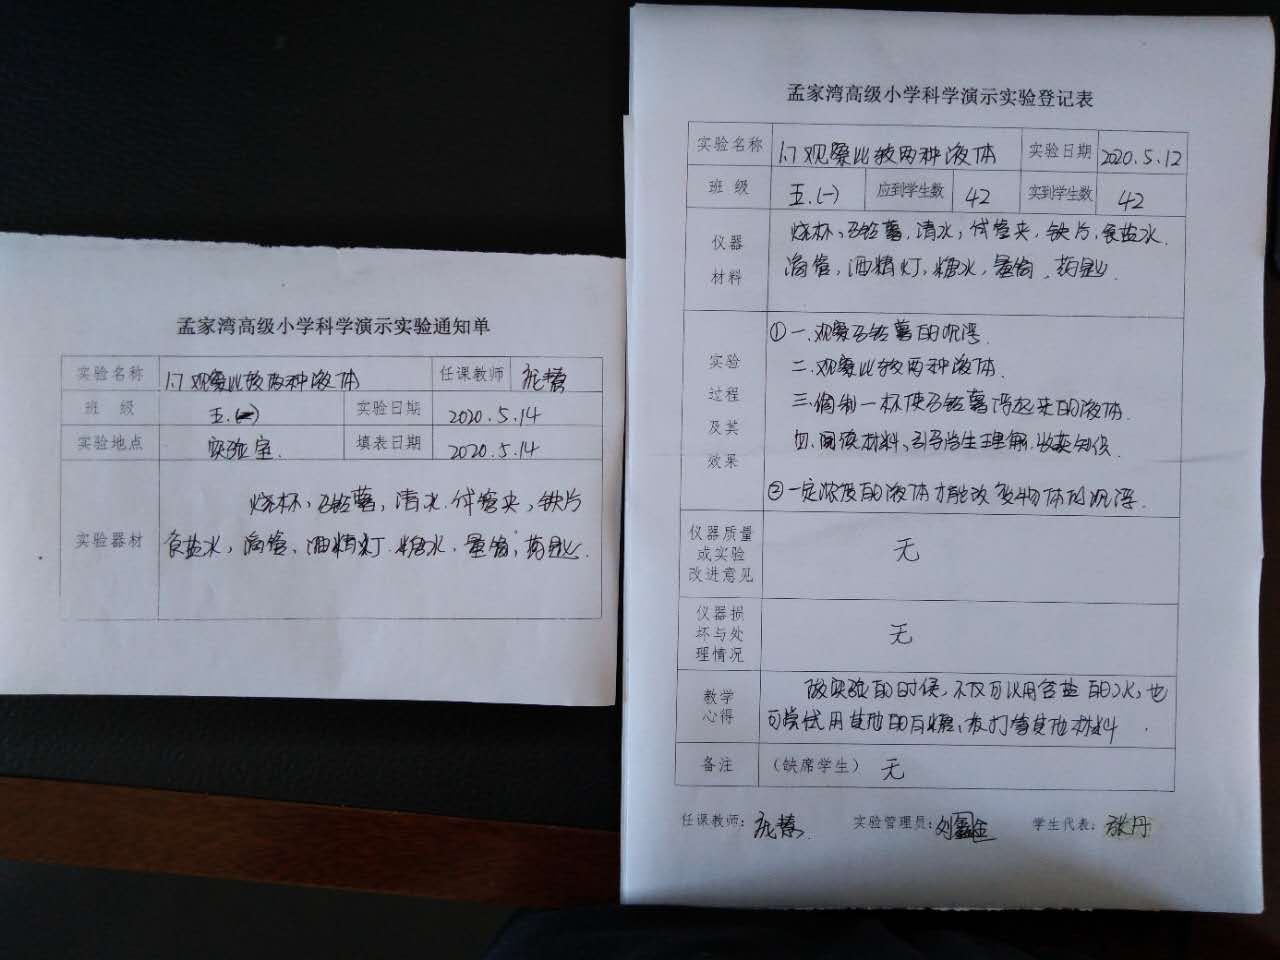 孟家湾高级小学科学演示实验通知单
实验名称 1.7 观察比较两种液体 任课教师
班 级 五.(一) 实验日期 2020.5.14
实验地点 实验室. 填表日期 2020.5.14
实验器材
烧杯、马铃薯,清水.试管夹,铁片
食盐水,滴管,酒精灯.糖水.量筒,药匙.
孟家湾高级小学科学演示实验登记表
实验名称 1.7 观察比较两种液体 实验日期 2020.5.12
班 级 五.(一) 应到学生数 42 实到学生数 42
仪器
材料
烧杯、马铃薯,清水,试管夹,铁片,食盐水.
滴管,酒精灯,糖水,量筒,药匙.
实验
过程
及其
效果
①一.观察马铃薯的沉浮.
二.观察比较两种液体.
三.调制一杯使马铃薯浮起来的液体.
四.阅读材料、引导学生理解.收获知识.
②一定浓度的液体才能改变物体的沉浮.
仪器质量
或实验
改进意见
无
仪器损
坏与处
理情况
无
教学
心得
做实验的时候,不仅可以用含盐的水,也
可尝试用其他的白糖、苏打等其他材料.
备注 (缺席学生) 无
任课教师: 实验管理员:刘鑫金 学生代表:张丹